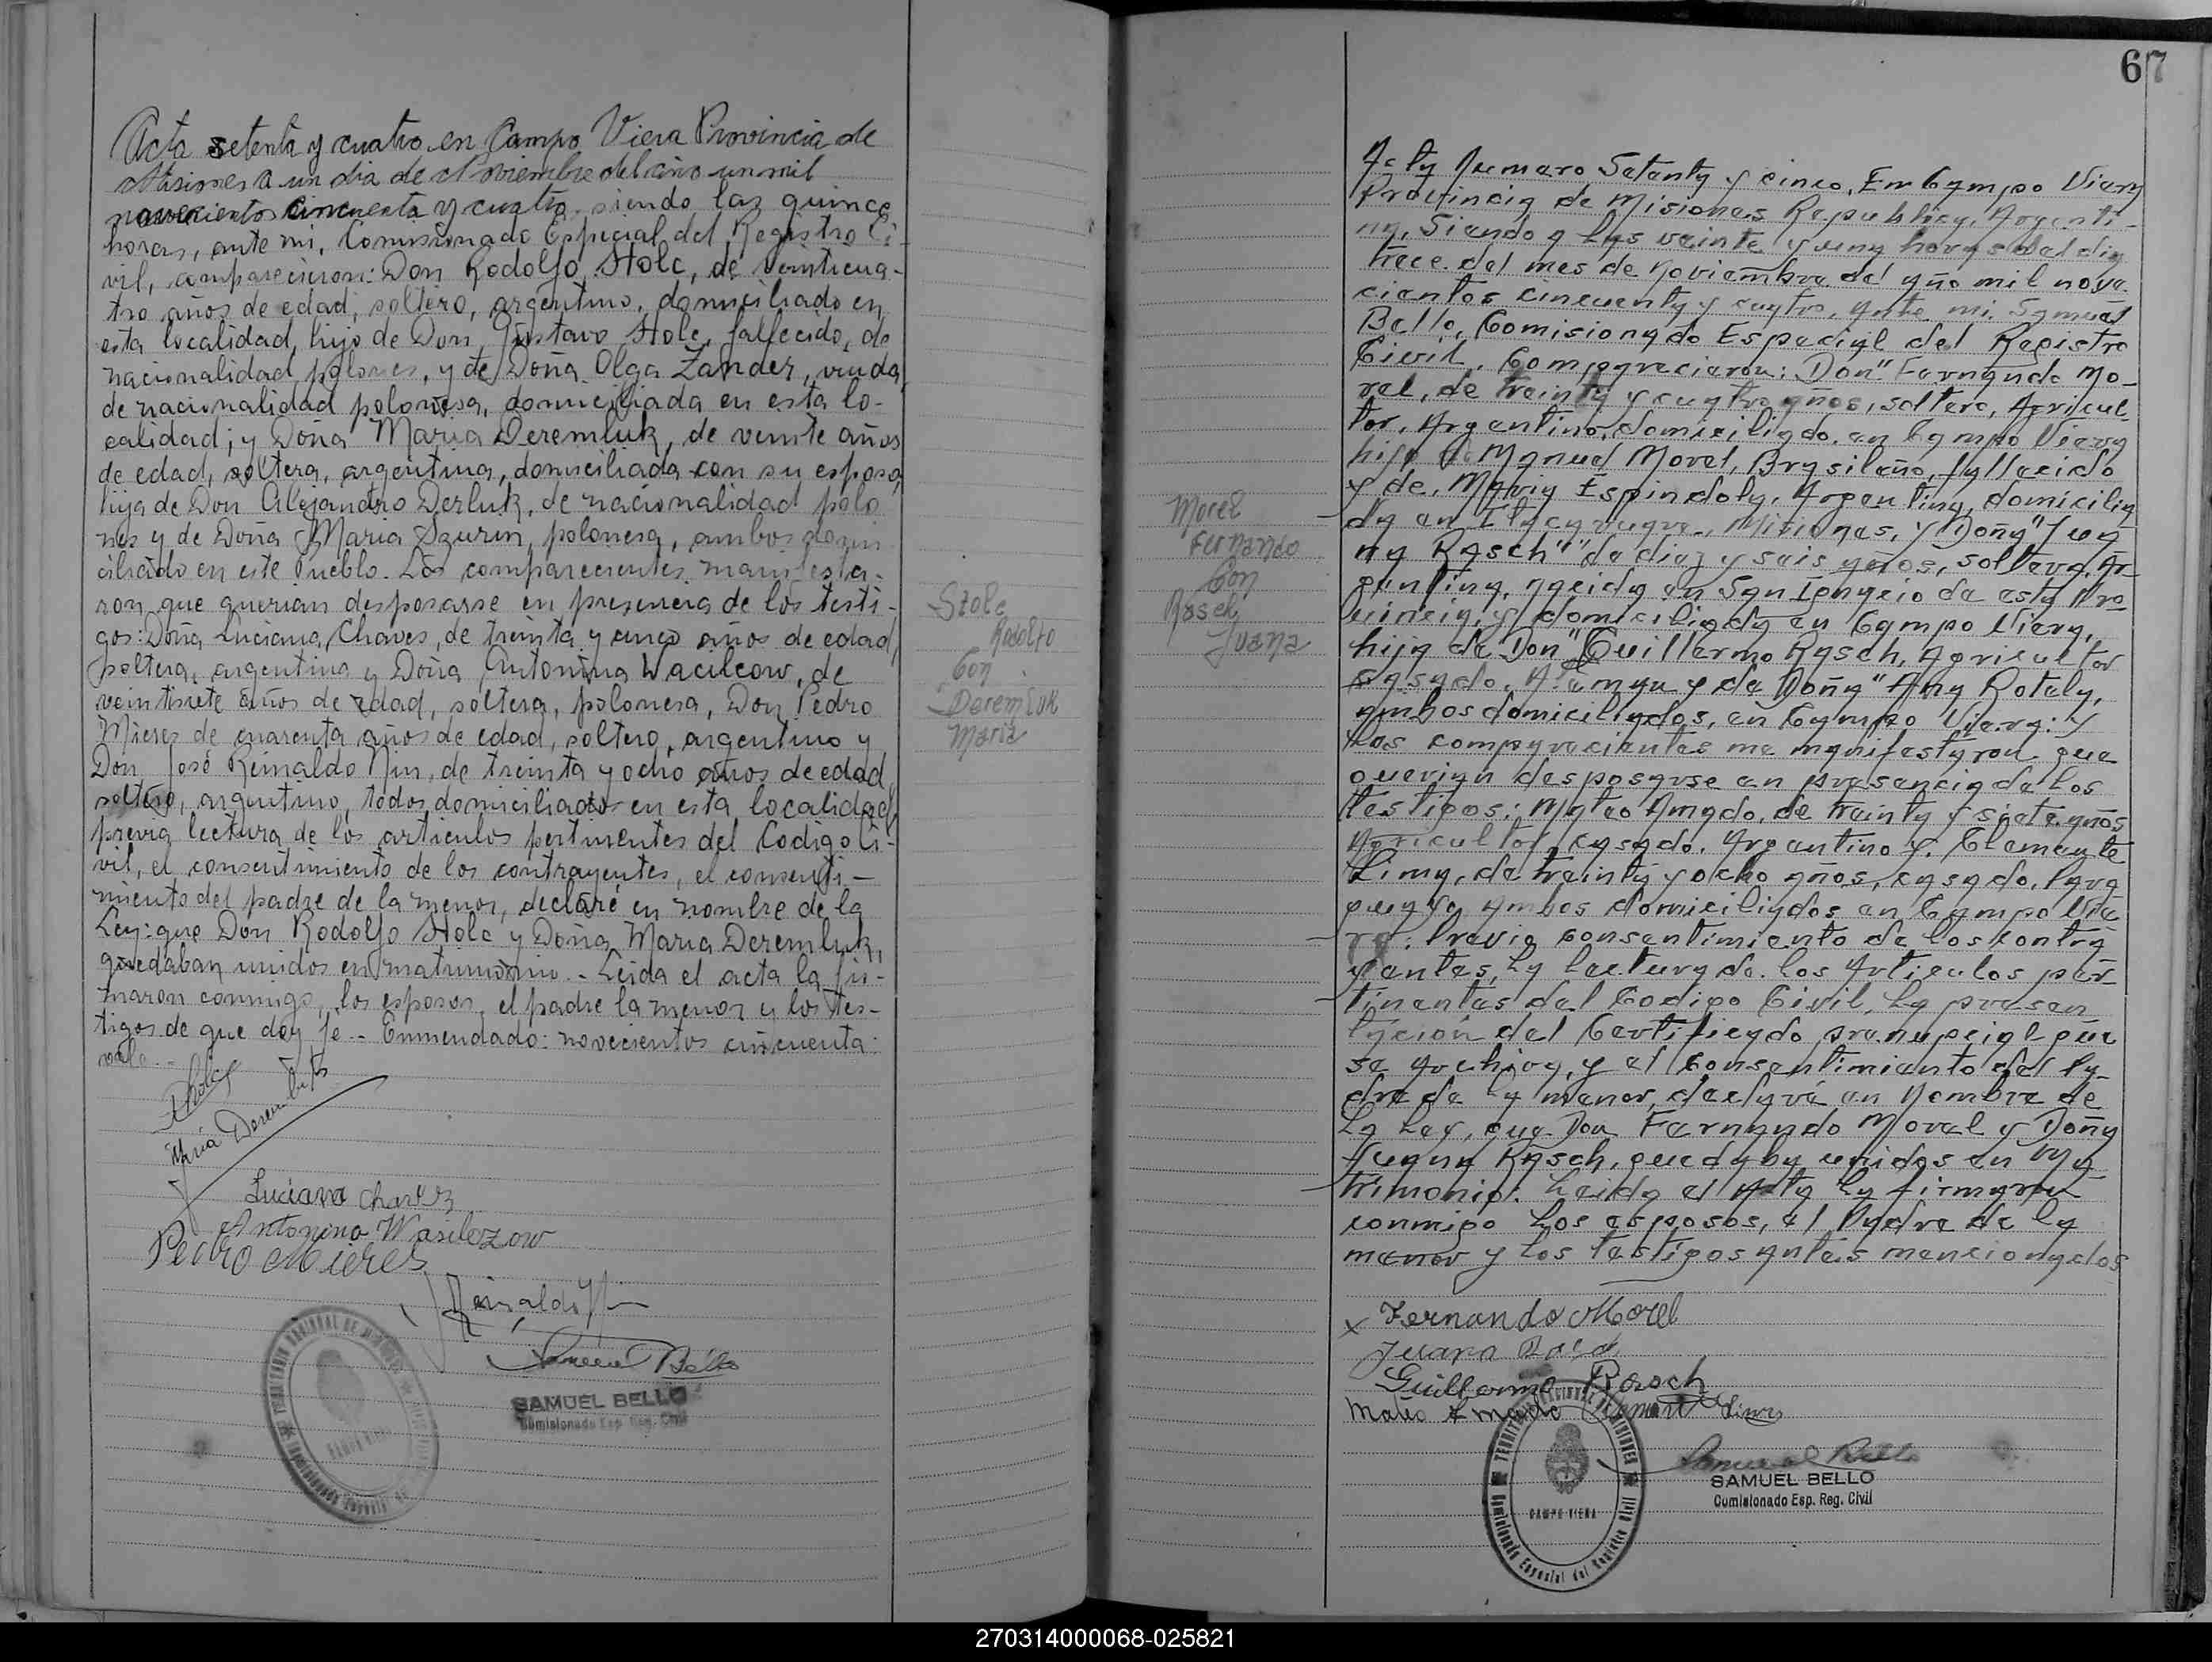 Acta setenta y cuatro en Campo Viera Provincia de
Misiones a un dia de Noviembre del año un mil
novecientos cincuenta y cuatro siendo las quince
horas, ante mi, Comisionado Especial del Registro Ci-
vil, comparecieron: Don Rodolfo Stolc, de veinticua-
tro años de edad, soltero, argentino, domiciliado en
esta localidad, hijo de Don Gustavo Stolc, fallecido, de
nacionalidad polones, y de Doña Olga Zander, viuda
de nacionalidad polonesa, domiciliada en esta lo-
calidad; y Doña Maria Deremluk, de veinte años
de edad, soltera, argentina, domiciliada con su esposo,
hija de Don Alejandro Derluk, de nacionalidad polo
nes y de Doña Maria Szurin, polonesa, ambos domi
ciliado en este Pueblo. Los comparecientes manifesta-
ron que querian desposarse en presencia de los testi-
gos: Doña Luciana Chaves, de treinta y cinco años de edad,
soltera, argentina y Doña Antonina Wacilcow, de
veintisiete años de edad, soltera, polonesa, Don Pedro
Mieres de cuarenta años de edad, soltero, argentino y
Don José Reinaldo Nin, de treinta y ocho años de edad
soltero, argentino, todos domiciliados en esta localidad,
previa lectura de los articulos pertinentes del Codigo Ci-
vil, el consentimiento de los contrayentes, el consenti-
miento del padre de la menor, declaré en nombre de la
Ley: que Don Rodolfo Stolc y Doña Maria Deremluk,
quedaban unidos en matrimonio.- Leida el acta la fir-
maron conmigo, los esposos, el padre la menor y los tes-
tigos de que doy fé.- Enmendado: novecientos cincuenta:
vale.-
RStolc
Maria Deremluk
Luciana Chavez
Antonina Wasilczow
Pedro Mieres
Reinaldo
Samuel Bello
SAMUEL BELLO
Comisionado Esp. Reg. Civil
Szolc
Rodolfo
Con
Deremluk
Maria
67
Morel
Fernando
Con
Rasch
Juana
Acta Numero Setenta y cinco, En Campo Viera
Provincia de Misiones Republica, Argenti-
na, Siendo a las veinte y una horas del dia
trece del mes de Noviembre del año mil nove
cientos cincuenta y cuatro, Ante mi Samuel
Bello, Comisionado Especial del Registro
Civil, Comparecieron: Don "Fernando Mo-
rel, de treinta y cuatro años, soltero, Agricul-
tor, Argentino, domiciliado en Campo Viera
hijo de Manuel Morel, Brasileño, fallecido
y de, Maria Espindola, Argentina, domicilia
da en Itacaruare, Misiones, y Doña "Jua
na Rasch" de diez y seis años, soltera, Ar
gentina, nacida en San Ignacio de esta Pro
vincia, y domiciliada en Campo Viera,
hija de Don "Guillermo Rasch, Agricultor
casado, Aleman y de Doña "Ana Rotaly,
ambos domiciliados, en Campo Viera: y
Los comparecientes me manifestaron que
querian desposarse en presencia de los
testigos: Mateo Amado, de treinta y siete años
Agricultor, casado, Argentino y, Clemente
Lima, de treinta y ocho años, casado, Para
guayo ambos domiciliados en Campo Vie
ra: Previo consentimiento de los contra
yentes, La Lectura de los Articulos per
tinentes del Codigo Civil, La presen
tacion del Certificado prenupcial que
se archiva, y el consentimiento del Pa-
dre de la menor, declaré en Nombre de
La Ley, que Don Fernando Morel y Doña
Juana Rasch, quedaba unidos en Ma
trimonio. Leida el Acta La firmaron
conmigo Los esposos, el Padre de la
menor y Los testigos antes mencionados
x Fernando Morel
Juana
Guillermo Rasch
Mateo Amado Clemente Lima
TERRITORIO NACIONAL DE MISIONES
CAMPO VIERA
Comisionado Especial del Registro Civil
Samuel Bello
SAMUEL BELLO
Comisionado Esp. Reg. Civil
270314000068-025821